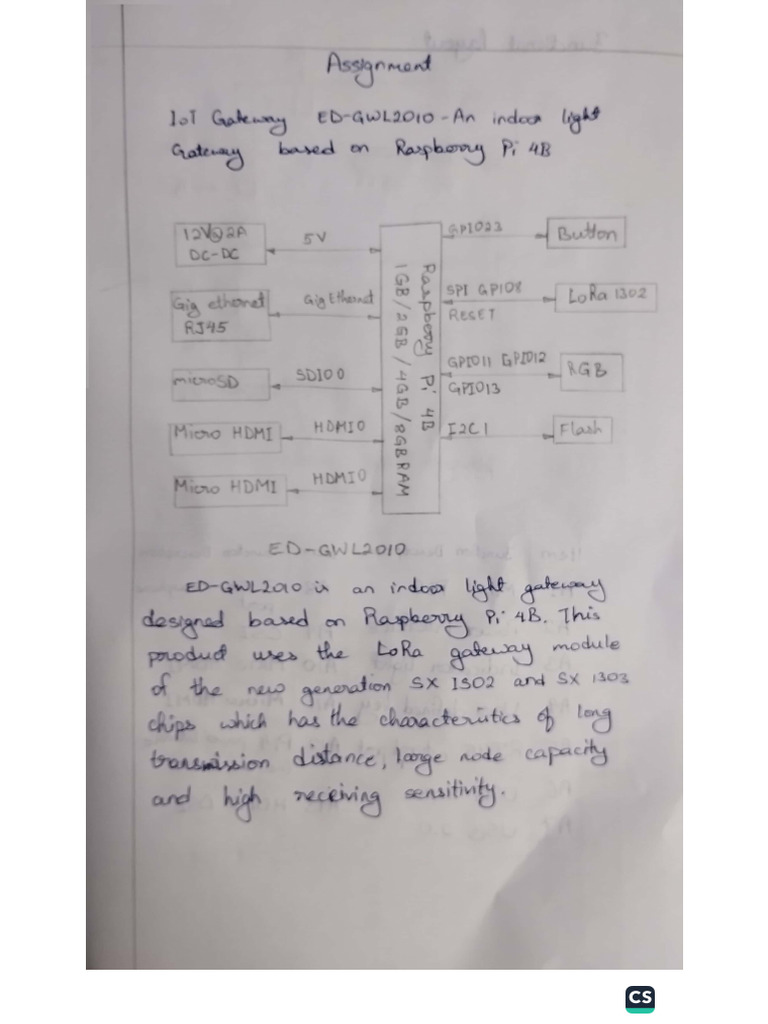 Assignment
IoT Gateway ED-GWL2010 - An indoor light
Gateway based on Raspberry Pi 4B
12V@2A
DC-DC
5V
Gig ethernet
RJ45
Gig Ethernet
microSD
SDIO0
Micro HDMI
HDMI0
Micro HDMI
HDMI0
Raspberry Pi 4B
1GB/2GB/4GB/8GB RAM
GPIO23
Button
SPI GPIO8
RESET
LoRa 1302
GPIO11 GPIO12
GPIO13
RGB
I2C1
Flash
ED-GWL2010
ED-GWL2010 is an indoor light gateway
designed based on Raspberry Pi 4B. This
product uses the LoRa gateway module
of the new generation SX 1302 and SX 1303
chips which has the characteristics of long
transmission distance, large node capacity
and high receiving sensitivity.
CS